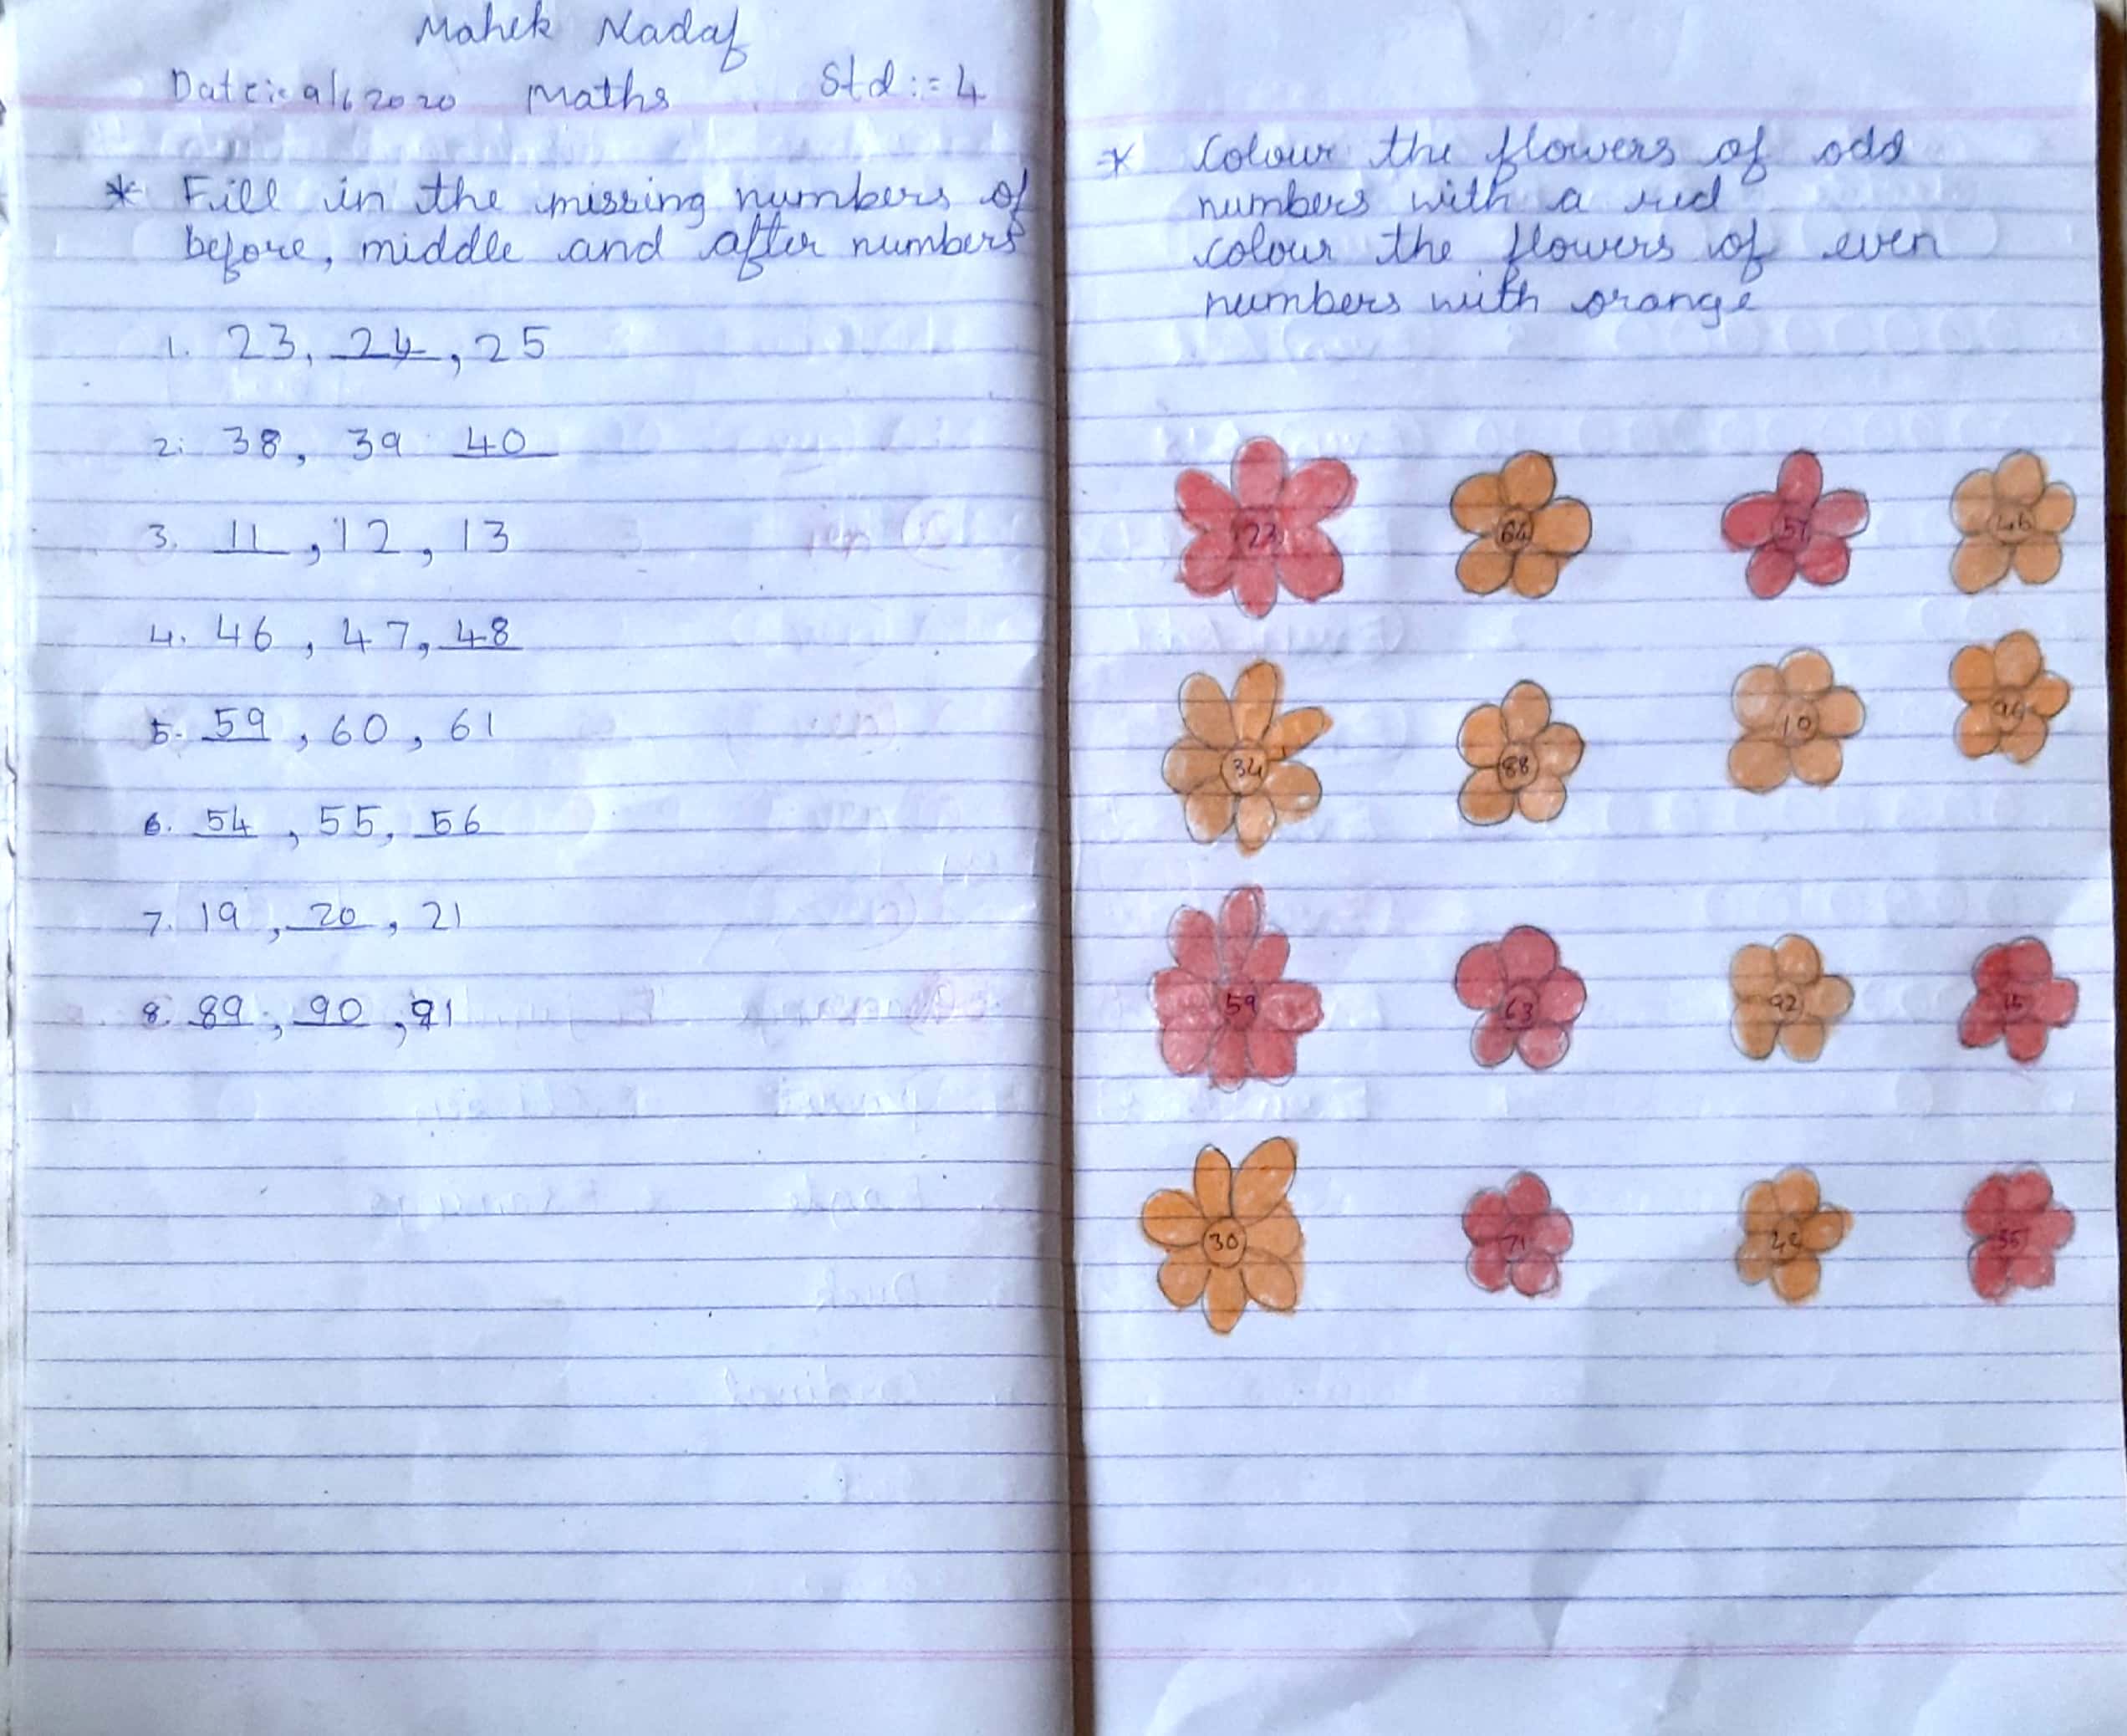 Mahek Nadaf
Date:- 9/6 2020 Maths Std :- 4
* Fill in the missing numbers of
before, middle and after numbers
1. 23, 24, 25
2. 38, 39 40
3. 11, 12, 13
4. 46, 47, 48
5. 59, 60, 61
6. 54, 55, 56
7. 19, 20, 21
8. 89, 90, 91
* Colour the flowers of odd
numbers with a red
colour the flowers of even
numbers with orange
23 64 57 46
34 88 10
59 63 92 15
30 71 42 35